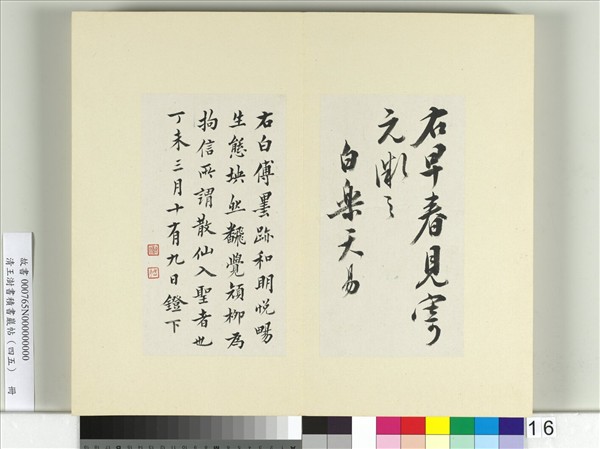 右早春見寄
元微之
白樂天易
右白傅墨跡和明悅暢
生態
拘信所謂散仙入聖者也
丁未三月十有九日鐙下
故書 000765N000000000
清王澍書積書巖帖(四五) 冊
16